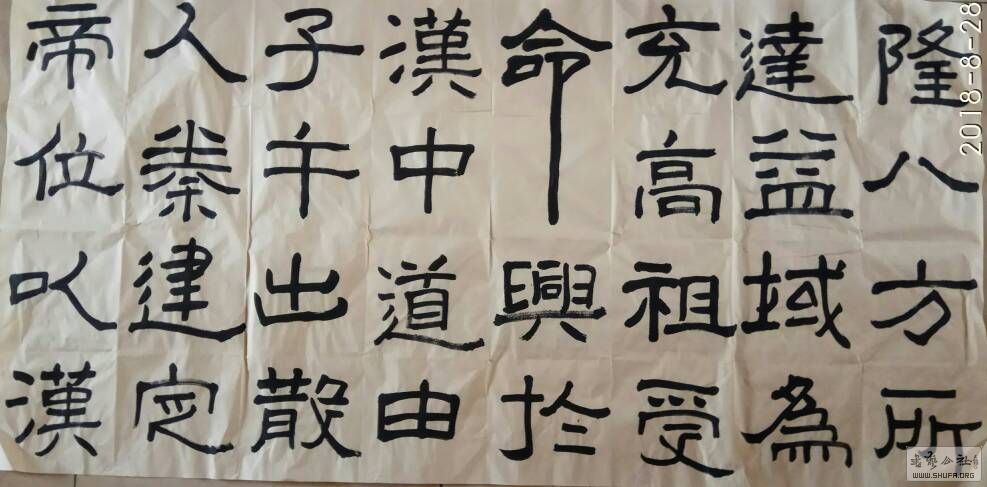 隆八方所
達益域為
充高祖受
命興於
漢中道由
子午出散
入秦建定
帝位㠯漢
2018-8-28
書藝公社
WWW.SHUFA.ORG